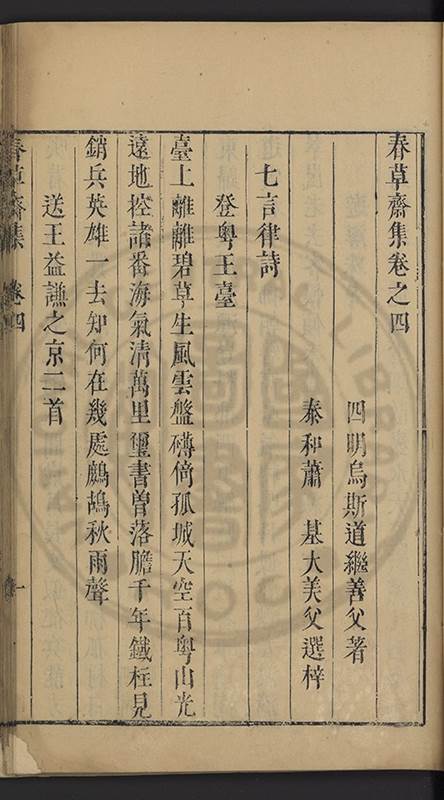 春草齋集卷之四
四明烏斯道繼善父著
泰和蕭　基大美父選梓
七言律詩
登粤王臺
臺上離離碧草生風雲盤礡倚孤城天空百粤山光
遠地控諸番海氣清萬里璽書曽落膽千年鐵柱見
銷兵英雄一去知何在幾處鷓鴣秋雨聲
送王益謙之京二首
春草齋集　卷四　一